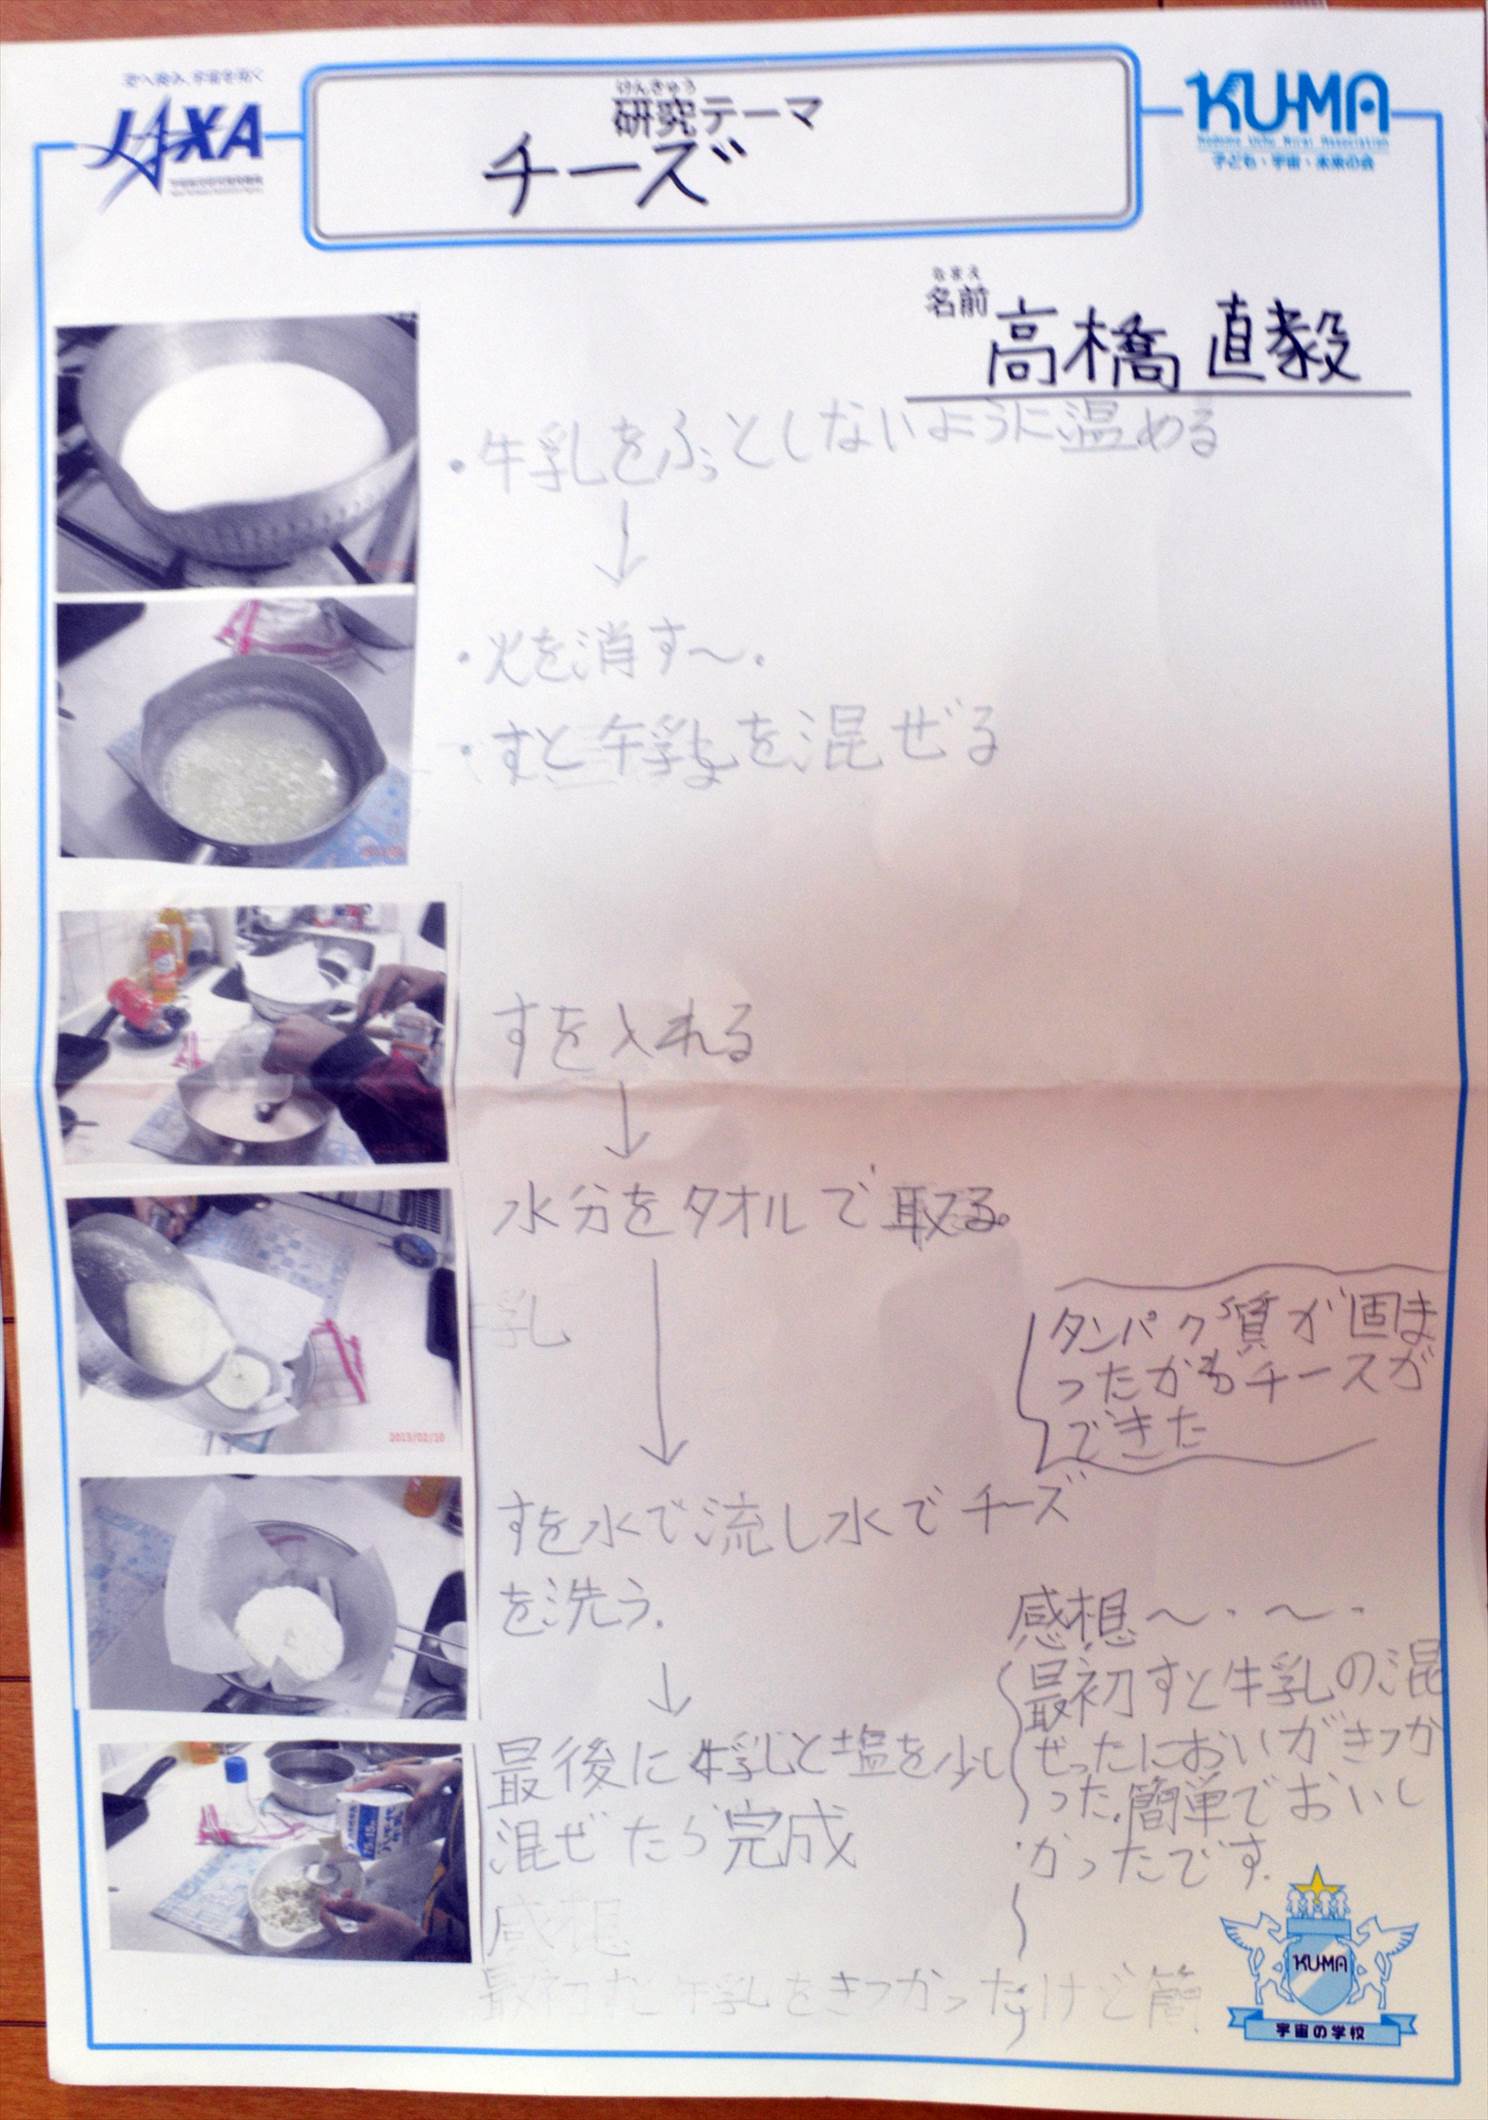 空へ挑み、宇宙を拓く
JAXA
けんきゅう
研究テーマ
チーズ
KU-MA
Kodomo Uchu Mirai Association
子ども・宇宙・未来の会
なまえ
名前
高橋 直毅
・牛乳をふっとしないように温める
↓
・火を消す〜.
・すと牛乳を混ぜる
すを入れる
↓
水分をタオルで取る。
乳
↓
タンパク質が固ま
ったからチーズが
できた
2013/02/10
すを水で流し水でチーズ
を洗う.
↓
感想〜・〜・
最初すと牛乳の混
ぜったにおいがきつか
った.簡単でおいし
かったです.
最後に牛乳と塩を少し
混ぜたら完成
感想
最初すと牛乳をきつかったけど簡
KU-MA
宇宙の学校